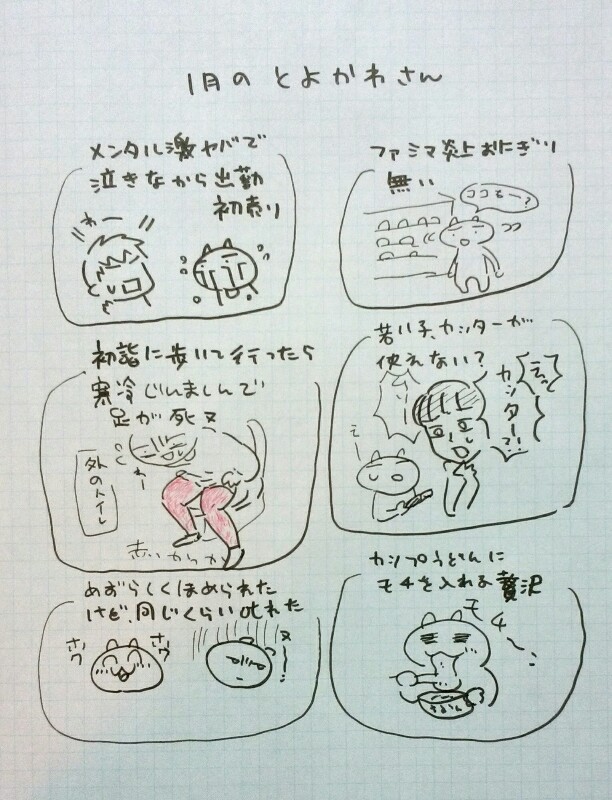 1月のとよかわさん
メンタル激ヤバで
泣きながら出勤
初売り
わー
ファミマ炎上おにぎり
無い
ココもー?
初詣に歩いて行ったら
寒冷じんましんで
足が死ヌ
外のトイレ
赤いからか
若い子、カッターが
使えない?
えっ
カッターで!
え
めずらしくほめられた
けど、同じくらい叱れた
カップうどんに
モチを入れる贅沢
モチ〜